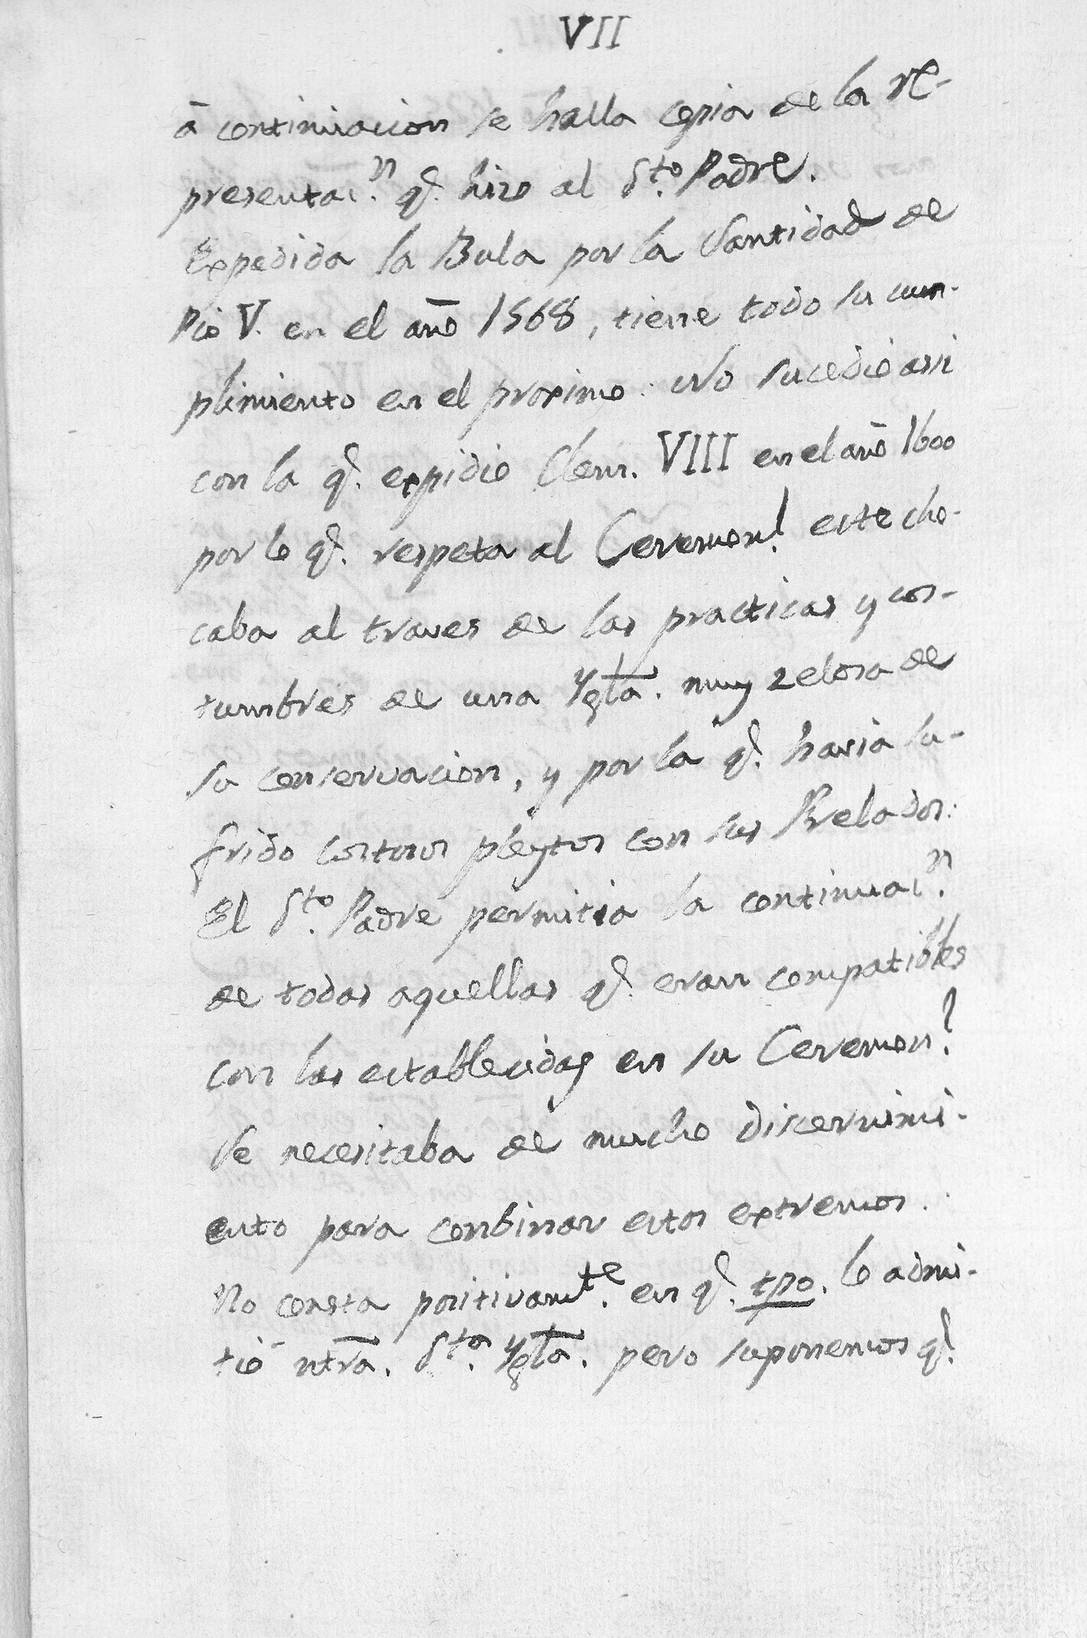 VII
â continuacion se halla copia de la re-
presentac.ⁿ q.ͤ hizo al S.ᵗᵒ Padre.
Expedida la Bula por la Santidad de
Pio V. en el año 1568, tiene todo su cum-
plimiento en el proximo. No sucedió assi
con la q.ͤ expidio Clem. VIII en el año 1600
por lo q.ͤ respeta al Ceremon.ˡ este cho-
caba al traves de las practicas y cos-
tumbres de una Ygla. muy zelosa de
su conservacion, y por la q.ͤ havia su-
frido costosos pleytos con sus Prelados.
El S.ᵗᵒ Padre permitia la continuac.ⁿ
de todas aquellas q.ͤ eran compatibles
con las establecidas en su Ceremon.ˡ
Se necesitaba de mucho discernimi-
ento para conbinar estos extremos.
No consta positivam.ᵗᵉ en q.ͤ tpo. lo admi-
tió ntra. S.ᵗᵃ Ygla. pero suponemos q.ͤ